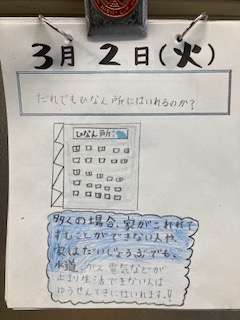 3月2日(火)
だれでもひなん所にはいれるのか？
ひなん所
多くの場合、家がこわれて
すむことができない人や、
家はだいじょうぶでも、
水道、ガス、電気などが
止まり生活できない人は
ゆうせんてきにはいれます!!